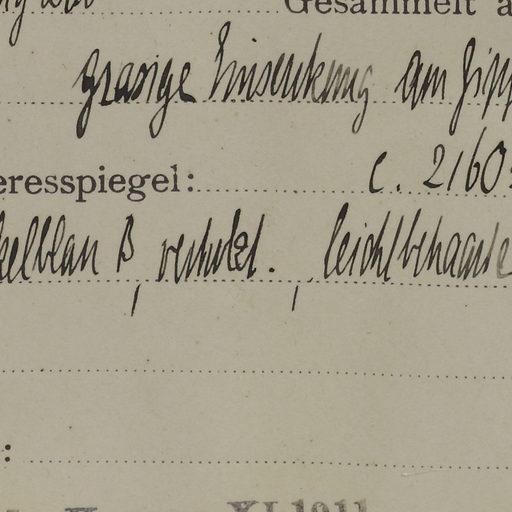 Gesammelt a
grasige Einsenkung am Gipf
eresspiegel: c. 2160
kelblau B, verholzt., leicht behaarte
:
XI.1911